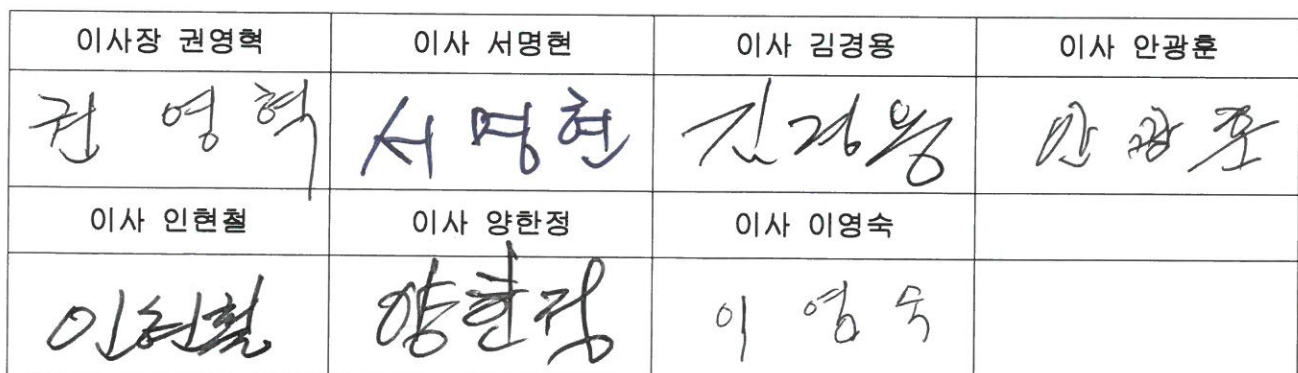 이사장 권영혁 이사 서명현 이사 김경용 이사 안광훈
권 영 혁 서 명 현 김 경 용 안 광 훈
이사 인현철 이사 양한정 이사 이영숙
인현철 양한정 이 영 숙